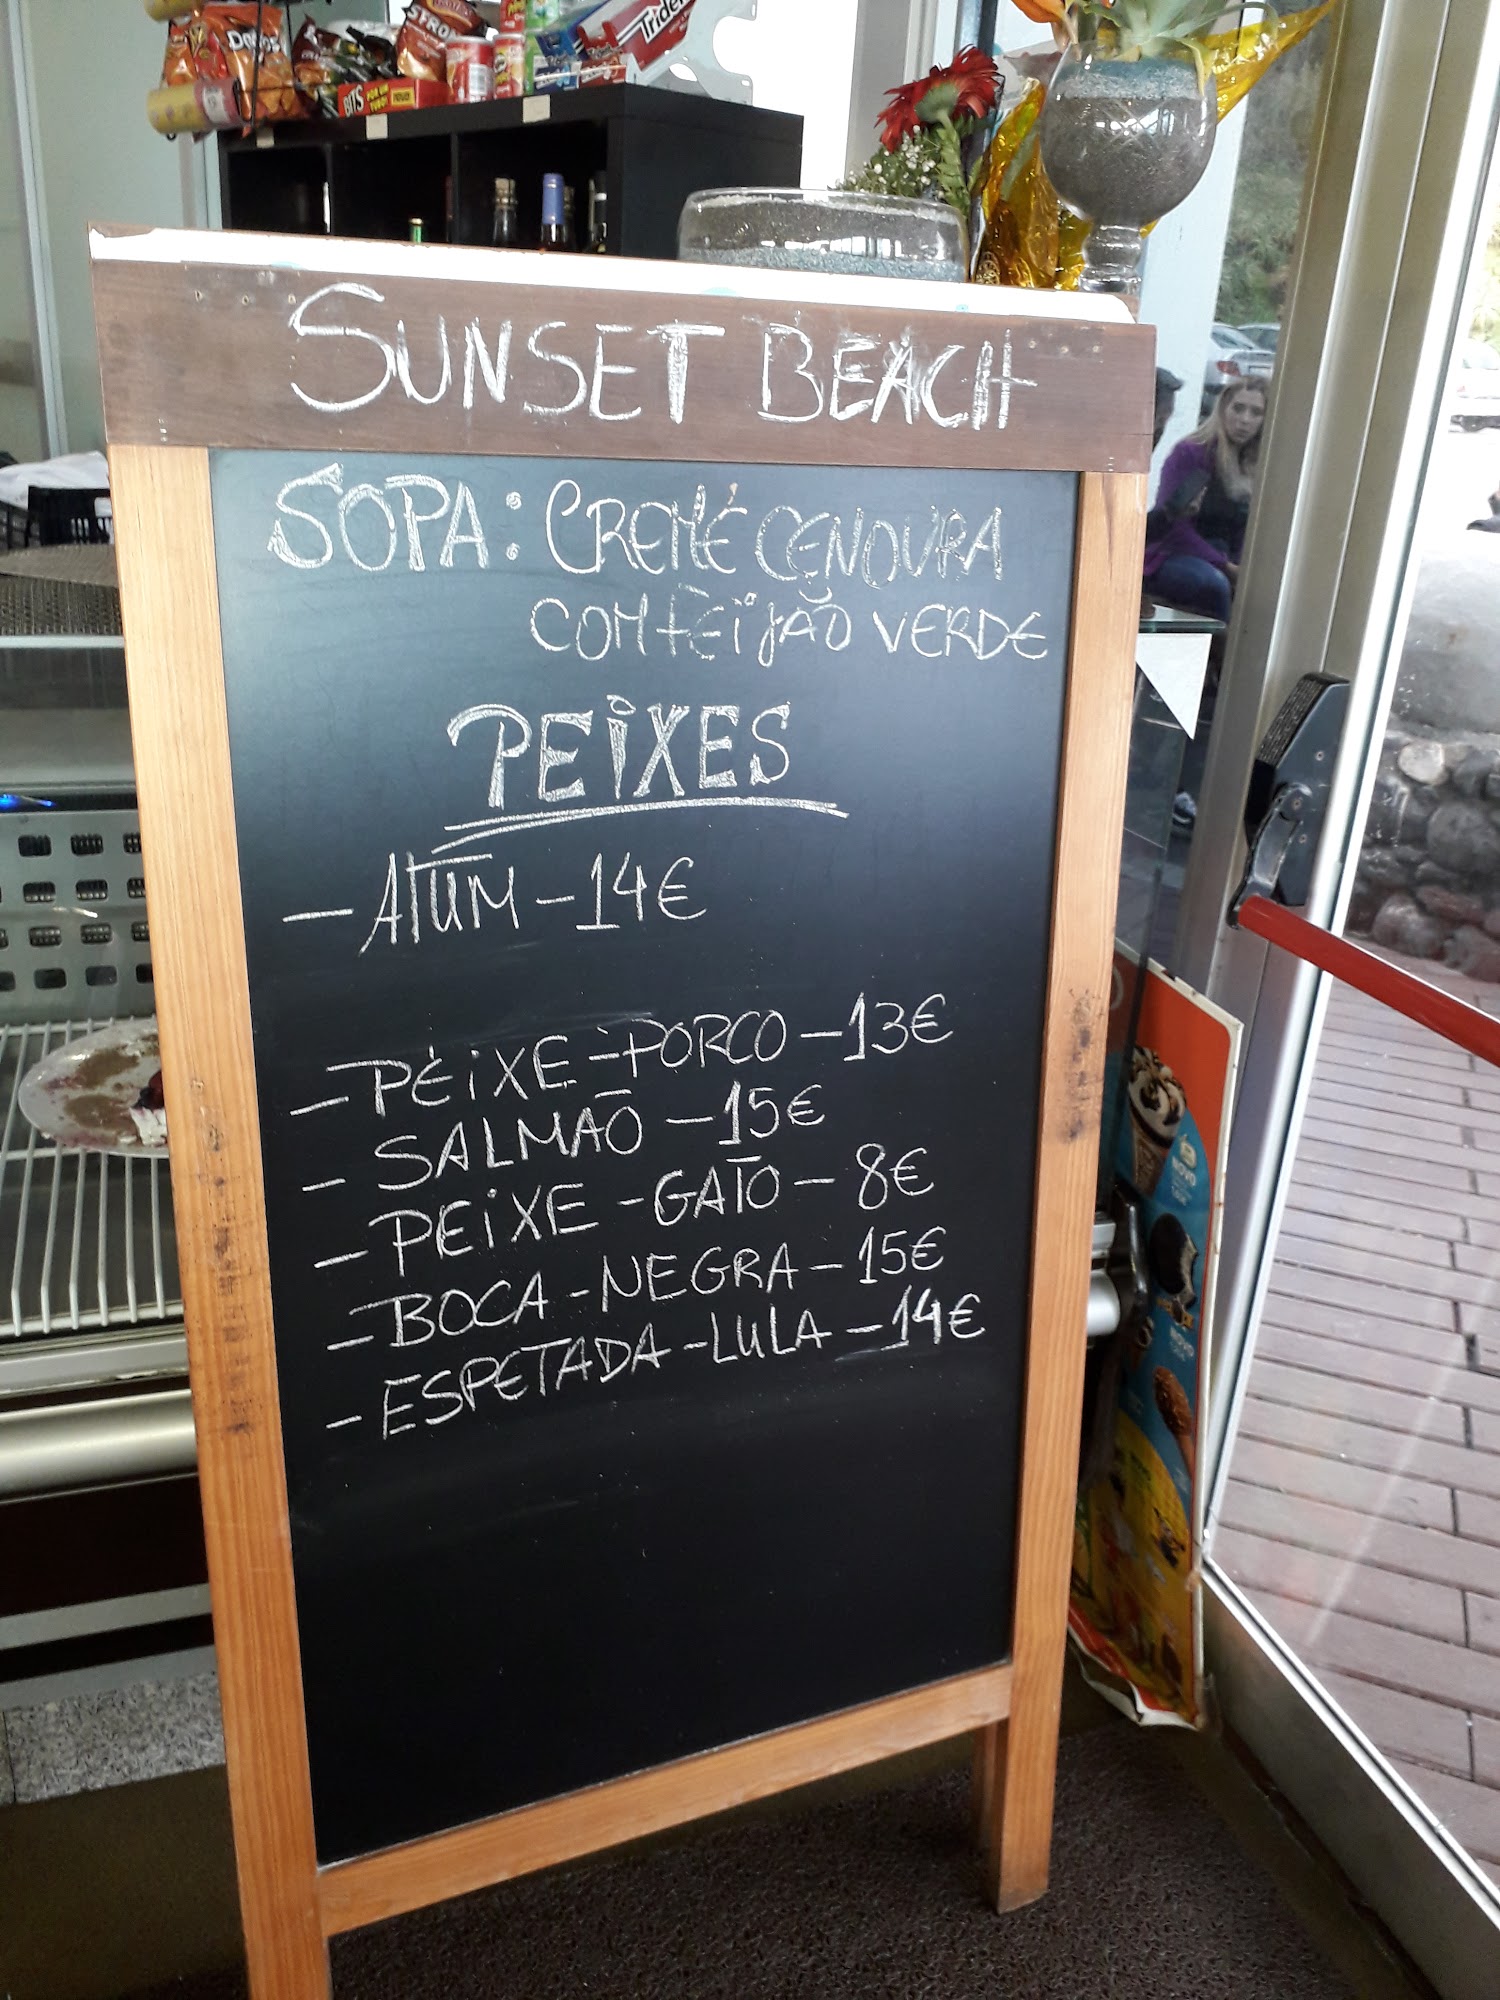 DORITOS
TRIDENT
BITS POR UM TUBO!
SUNSET BEACH
SOPA: CREME CENOURA
COM FEIJÃO VERDE
PEIXES
- ATUM - 14€
- PEIXE - PORCO - 13€
- SALMÃO - 15€
- PEIXE - GATO - 8€
- BOCA - NEGRA - 15€
- ESPETADA - LULA - 14€
NOVO
NOVO